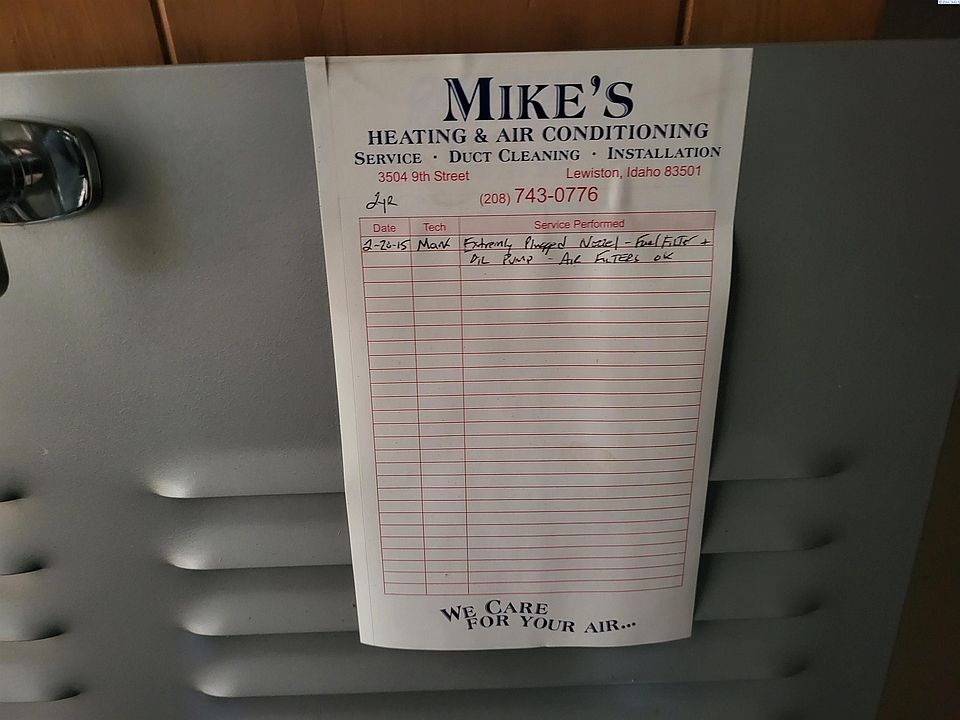 MIKE'S
HEATING & AIR CONDITIONING
SERVICE · DUCT CLEANING · INSTALLATION
3504 9th Street Lewiston, Idaho 83501
2yr (208) 743-0776
Date Tech Service Performed
2-26-15 Mark Extremly Plugged Nozzel - Fuel Filter +
OIL PUMP - AIR FILTERS OK
WE CARE
FOR YOUR AIR...